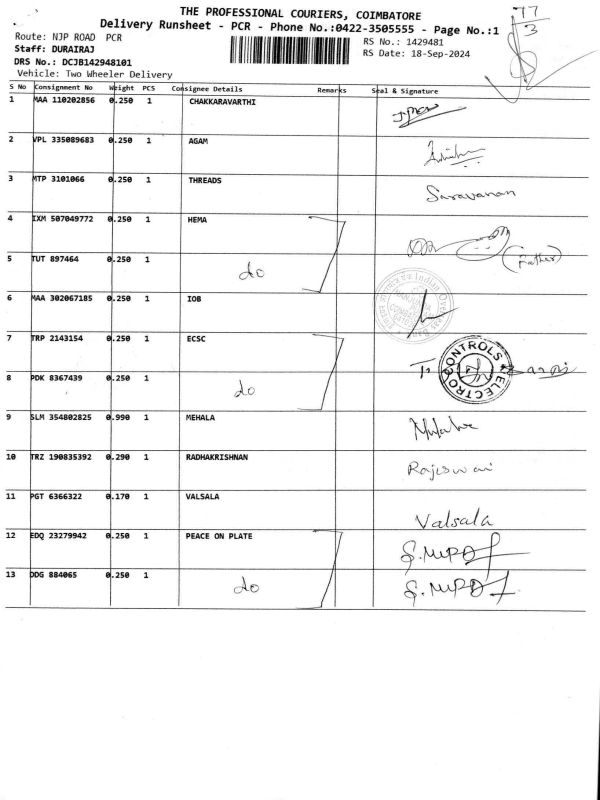 THE PROFESSIONAL COURIERS, COIMBATORE
Delivery Runsheet - PCR - Phone No.:0422-3505555 - Page No.:1
77
3
Route: NJP ROAD PCR
RS No.: 1429481
Staff: DURAIRAJ
RS Date: 18-Sep-2024
DRS No.: DCJB142948101
Vehicle: Two Wheeler Delivery
S No Consignment No Weight PCS Consignee Details Remarks Seal & Signature
1 MAA 110202856 0.250 1 CHAKKARAVARTHI
2 VPL 335089683 0.250 1 AGAM
3 MTP 3101066 0.250 1 THREADS Saravanan
4 IXM 507049772 0.250 1 HEMA
(Father)
5 TUT 897464 0.250 1 do
6 MAA 302067185 0.250 1 IOB
Indian Overseas Bank
7 TRP 2143154 0.250 1 ECSC
ELECTRO CONTROLS
8 PDK 8367439 0.250 1 do
9 SLM 354802825 0.990 1 MEHALA
10 TRZ 190835392 0.290 1 RADHAKRISHNAN Rajeswari
11 PGT 6366322 0.170 1 VALSALA Valsala
12 EDQ 23279942 0.250 1 PEACE ON PLATE
13 DDG 884065 0.250 1 do